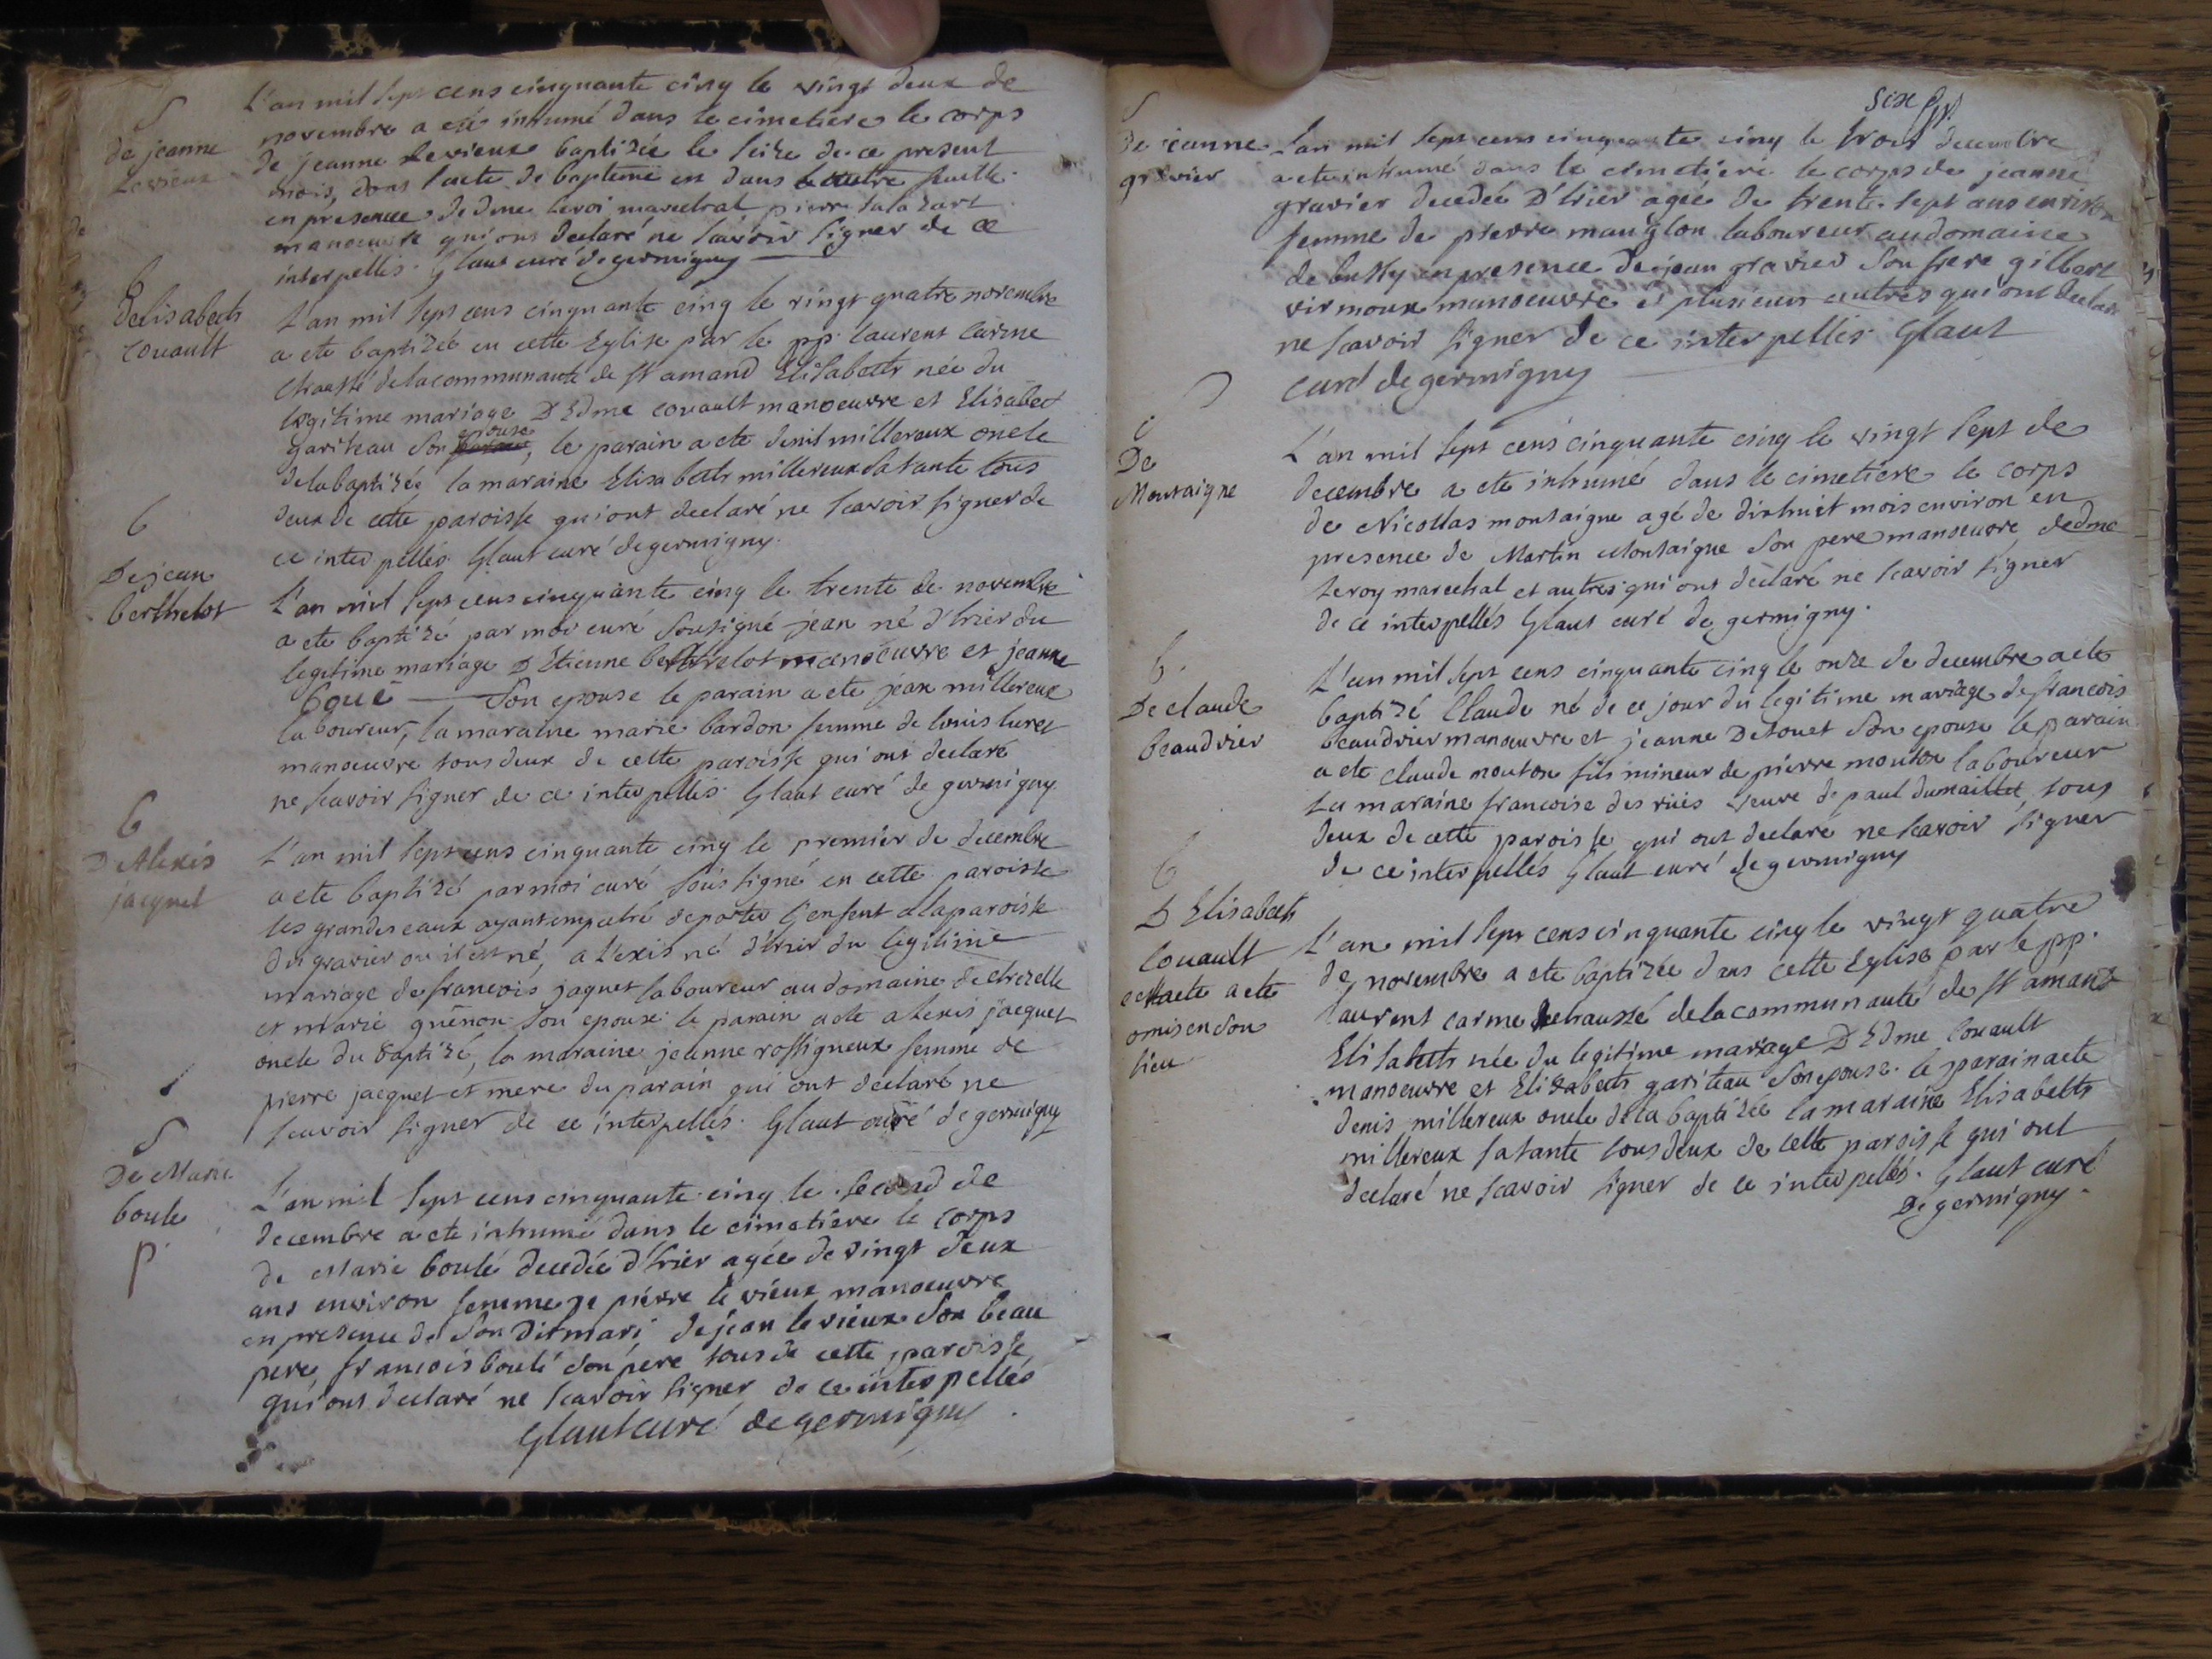 S
de jeanne
Levieux
L'an mil sept cens cinquante cinq le vingt deux de
novembre a eté inhumé dans le cimetiere le corps
de jeanne Levieux baptizée le seize de ce present
mois, dont l'acte de bapteme est dans feuille
en presence d'edme Leroi marechal pierre
manoeuvre qui ont declaré ne scavoir signer de ce
interpellés. Glaut curé de germigny
b
delisabeth
Couault
L'an mil sept cens cinquante cinq le vingt quatre novembre
a ete baptizée en cette Eglise par le pp. laurent Carme
chaussé de la communauté de st amand Elisabeth née du
legitime mariage D Edme couault manoeuvre et Elisabet
gariteau son epouse, le parain a ete denis millereux oncle
de la baptizée la maraine Elisabeth millereux sa tante tous
deux de cette paroisse qui ont declaré ne scavoir signer de
ce interpellés. Glaut curé de germigny.
b
De jean
berthelot
L'an mil sept cens cinquante cinq le trente de novembre
a ete baptizé par moi curé sousigné jean né d'hier du
legitime mariage D Etienne berthelot manoeuvre et jeanne
boué son epouse le parain a ete jean millereux
laboureur, la maraine marie bardon femme de louis luret
manoeuvre tous deux de cette paroisse qui ont declaré
ne scavoir signer de ce interpellés. Glaut curé de germigny
b
D Alexis
jacquet
L'an mil sept cens cinquante cinq le premier de decembre
a ete baptizé par moi curé soussigné en cette paroisse
les grandes eaux ayant empeché de porter l'enfent a la paroisse
du gravier ou il est né, alexis né d'hier du legitime
mariage de francois jaquet laboureur au domaine de chezelle
et marie guenon son epouse le parain a ete alexis jacquet
oncle du baptizé, la maraine jeanne rossigneux femme de
pierre jacquet et mere du parain qui ont declaré ne
scavoir signer de ce interpellés. Glaut curé de germigny
S
De Marie
boule
p.
L'an mil sept cens cinquante cinq le second de
decembre a ete inhumé dans le cimetiere le corps
de marie boulé decedée d'hier agée de vingt deux
ans environ femme de pierre le vieux manoeuvre
en presence de son dit mari, de jean le vieux son beau
pere, francois boulé son pere tous de cette paroisse
qui ont declaré ne scavoir signer de ce interpellés
Glaut curé de germigny
six
S
De jeanne
gravier
L'an mil sept cens cinquante cinq le trois decembre
a ete inhumé dans le cimetiere le corps de jeanne
gravier decedée D'hier agée de trente sept ans environ
femme de pierre mauglon laboureur au domaine
de bussy en presence de jean gravier son frere gilbert
virmoux manoeuvre et plusieurs autres qui ont declaré
ne scavoir signer de ce interpellés. Glaut
curé de germigny
De
Montaigne
L'an mil sept cens cinquante cinq le vingt sept de
decembre a ete inhumé dans le cimetiere le corps
de Nicollas montaigne agé de dixhuit mois environ en
presence de Martin Montaigne son pere manoeuvre, dedme
Leroy marechal et autres qui ont declaré ne scavoir signer
de ce interpellés Glaut curé de germigny.
b.
De claude
beaudrier
L'an mil sept cens cinquante cinq le onze de decembre a ete
baptizé Claude né de ce jour du legitime mariage de francois
beaudrier manoeuvre et jeanne Detouet son epouse le parain
a ete claude mouton fils mineur de pierre mouton laboureur
La maraine francoise des rües veuve de paul dumaillet, tous
deux de cette paroisse qui ont declaré ne scavoir signer
de ce interpellés Glaut curé de germigny
b
D Elisabeth
Couault
cet acte a ete
omis en son
lieu
L'an mil sept cens cinquante cinq le vingt quatre
de novembre a ete baptizée dans cette Eglise par le pp.
laurent carme dechaussé de la communauté de st amand
Elisabeth née du legitime mariage D Edme Couault
manoeuvre et Elizabeth gariteau son epouse. le parain a ete
denis millereux oncle de la baptizée la maraine Elisabeth
millereux sa tante tous deux de cette paroisse qui ont
declaré ne scavoir signer de ce interpellés. Glaut curé
De germigny.